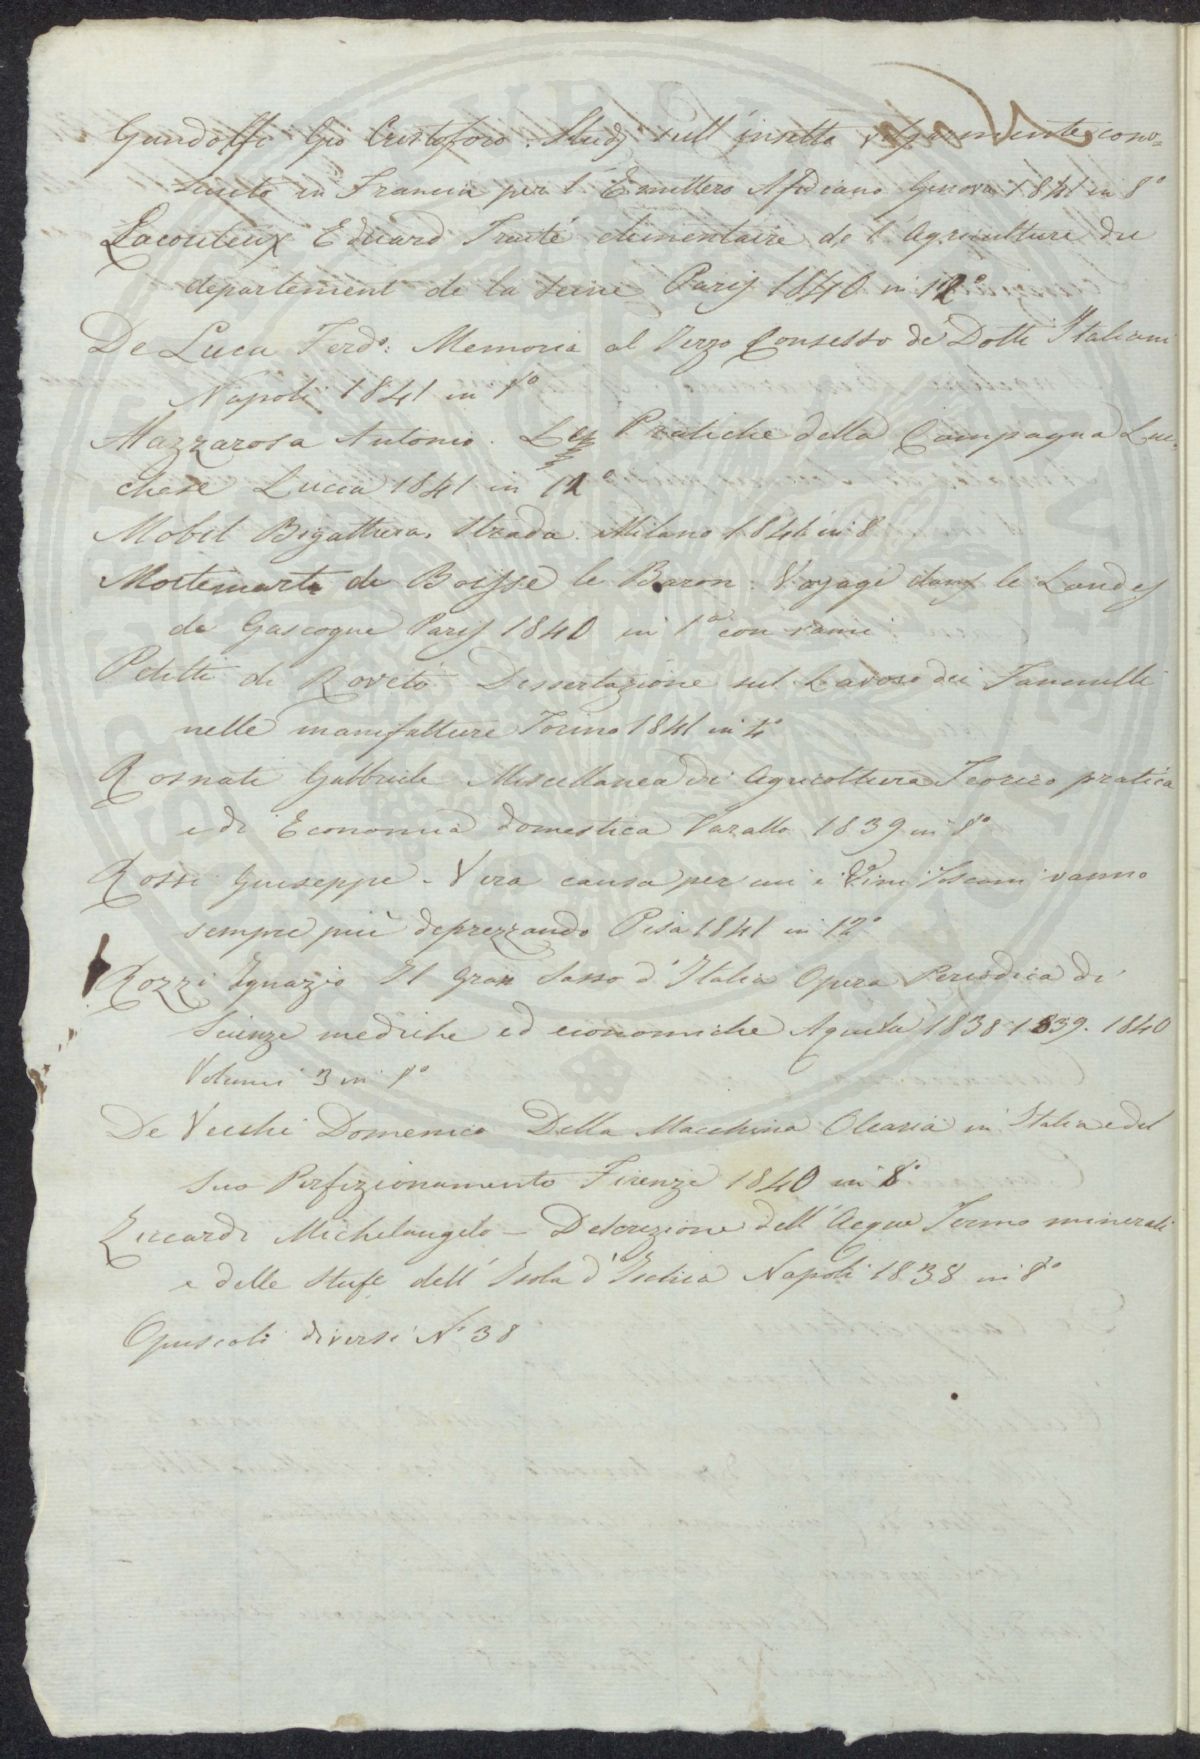 Gandolfi Gio Cristoforo. Studj sull'insetto volgarmente cono=
sciuto in Francia per l'Emittero Afidiano Genova 1841 in 8°
Lacouteux Eduard Traité elementaire de l'Agriculture du
departement de la Seine Paris 1840 in 12°
De Luca Ferd°: Memoria al Terzo Consesso de Dotti Italiani
Napoli 1841 in 8°
Mazzarosa Antonio. Le Pratiche della Campagna Luc=
chese Lucca 1841 in 12
Mobil Bigattiera. Strada. Milano 1846 in 8
Mortemart de Boisse le Baron. Voyage dans le Landes
de Gascogne Paris 1840 in con rami
Petitti di Roreto Dissertazione sul Lavoro dei Fanciulli
nelle manifatture Torino 1841 in 4°
Rosnati Gabbriele Miscellanea di Agricoltura Teorico pratica
e di Economia domestica Varallo 1839 in 8°
Rossi Giuseppe - Vera causa per cui i Vini Toscani vanno
sempre più deprezzando Pisa 1841 in 12°
Rozzi Ignazio Il Gran Sasso d'Italia Opera Periodica di
Scienze mediche ed economiche Aquila 1838 1839. 1840
Volumi 3 in 8°
De Vecchi Domenico Della Macchina Olearia in Italia e del
suo Perfezionamento Firenze 1840 in 8°
Ziccardi Michelangelo - Descrizione dell'Acque Termo minerali
e delle Stufe dell'Isola d'Ischia Napoli 1838 in 8°
Opuscoli diversi N° 38